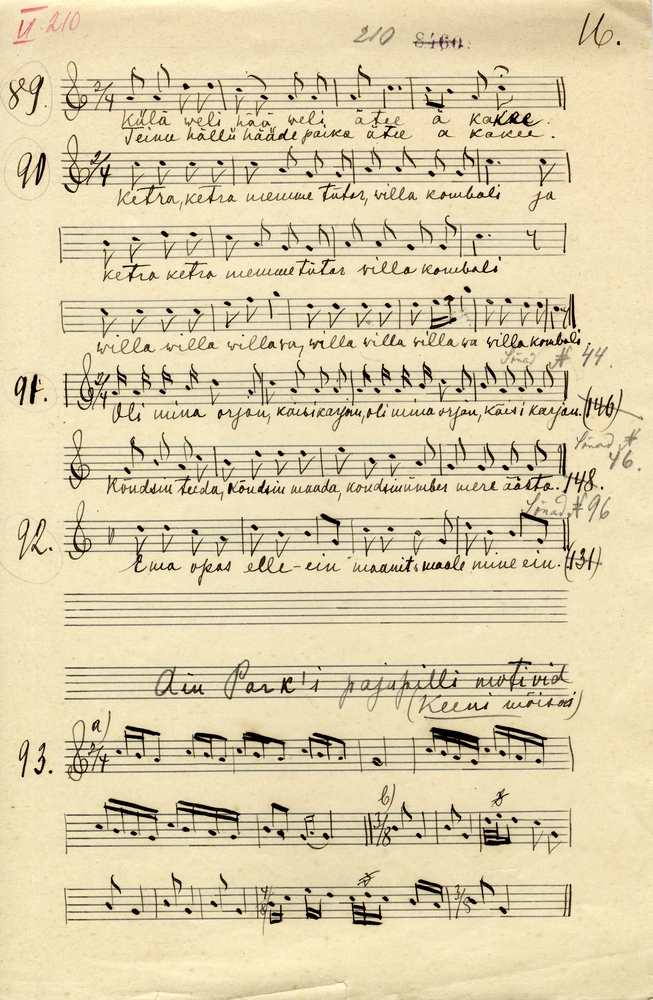 II 210
210 8460. 16.
89. 2/4
Külä veli hää veli ätee ä kakee.
Teine hällü hääde paika ätee a kakee.
90 2/4
Ketra, ketra memme tütar, villa kombali ja
ketra ketra memme tütar villa kombali
villa villa villa va, villa villa villa va villa kombali
Sõnad # 44
91. 2/4
Oli mina orjan, käesikarjan, oli mina orjan, käesi karjan. (146)
Sõnad # 46.
Kõndsin teeda, kõndsin maada, kondsin ümber mere äärta. 148.
Sõnad # 96
92.
Ema opas elle-ein maanits maale mine ein. (131)
Ain Park'i pajupilli motivid
(Keeni mõisas)
93. a) 2/4
b) 3/8
4/8 3/8